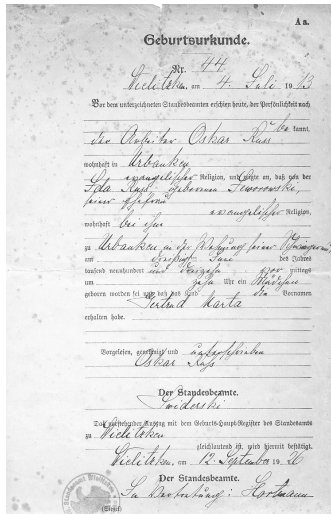 A a.
Geburtsurkunde.
Nr. 44
Wielitzken, am 4. Juli 1913
Vor dem unterzeichneten Standesbeamten erschien heute, der Persönlichkeit nach
be kannt,
der Arbeiter Oskar Russ
wohnhaft in Urbanken
evangelischer Religion, und zeigte an, daß von der
Ida Russ geborenen Jeworowski,
seiner Ehefrau
evangelischer Religion,
wohnhaft bei ihm
zu Urbanken in der Wohnung seiner
am Juni des Jahres
tausend neunhundert und dreizehn vor mittags
um zehn Uhr ein Mädchen
geboren worden sei und daß das Kind die Vornamen
Gertrud Marta
erhalten habe.
Vorgelesen, genehmigt und unterschrieben
Oskar Russ
Der Standesbeamte.
Swiderski
Daß vorstehender Auszug mit dem Geburts-Haupt-Register des Standesamts
zu Wielitzken
gleichlautend ist, wird hiermit bestätigt.
Wielitzken, am 12. September 1926
Der Standesbeamte.
In Vertretung: Hartmann
(Siegel)